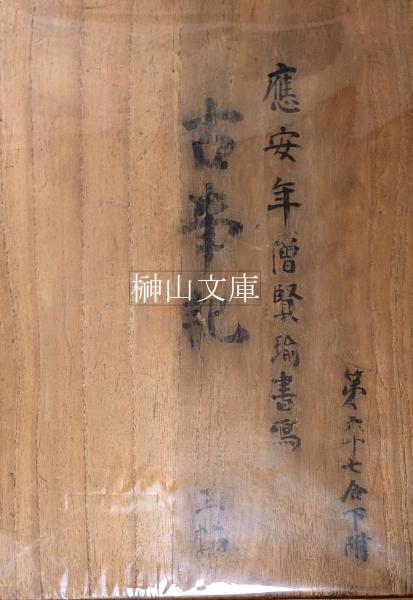 應安年僧賢瑜書寫
古事記
三帖
第六十七合下附
榊山文庫